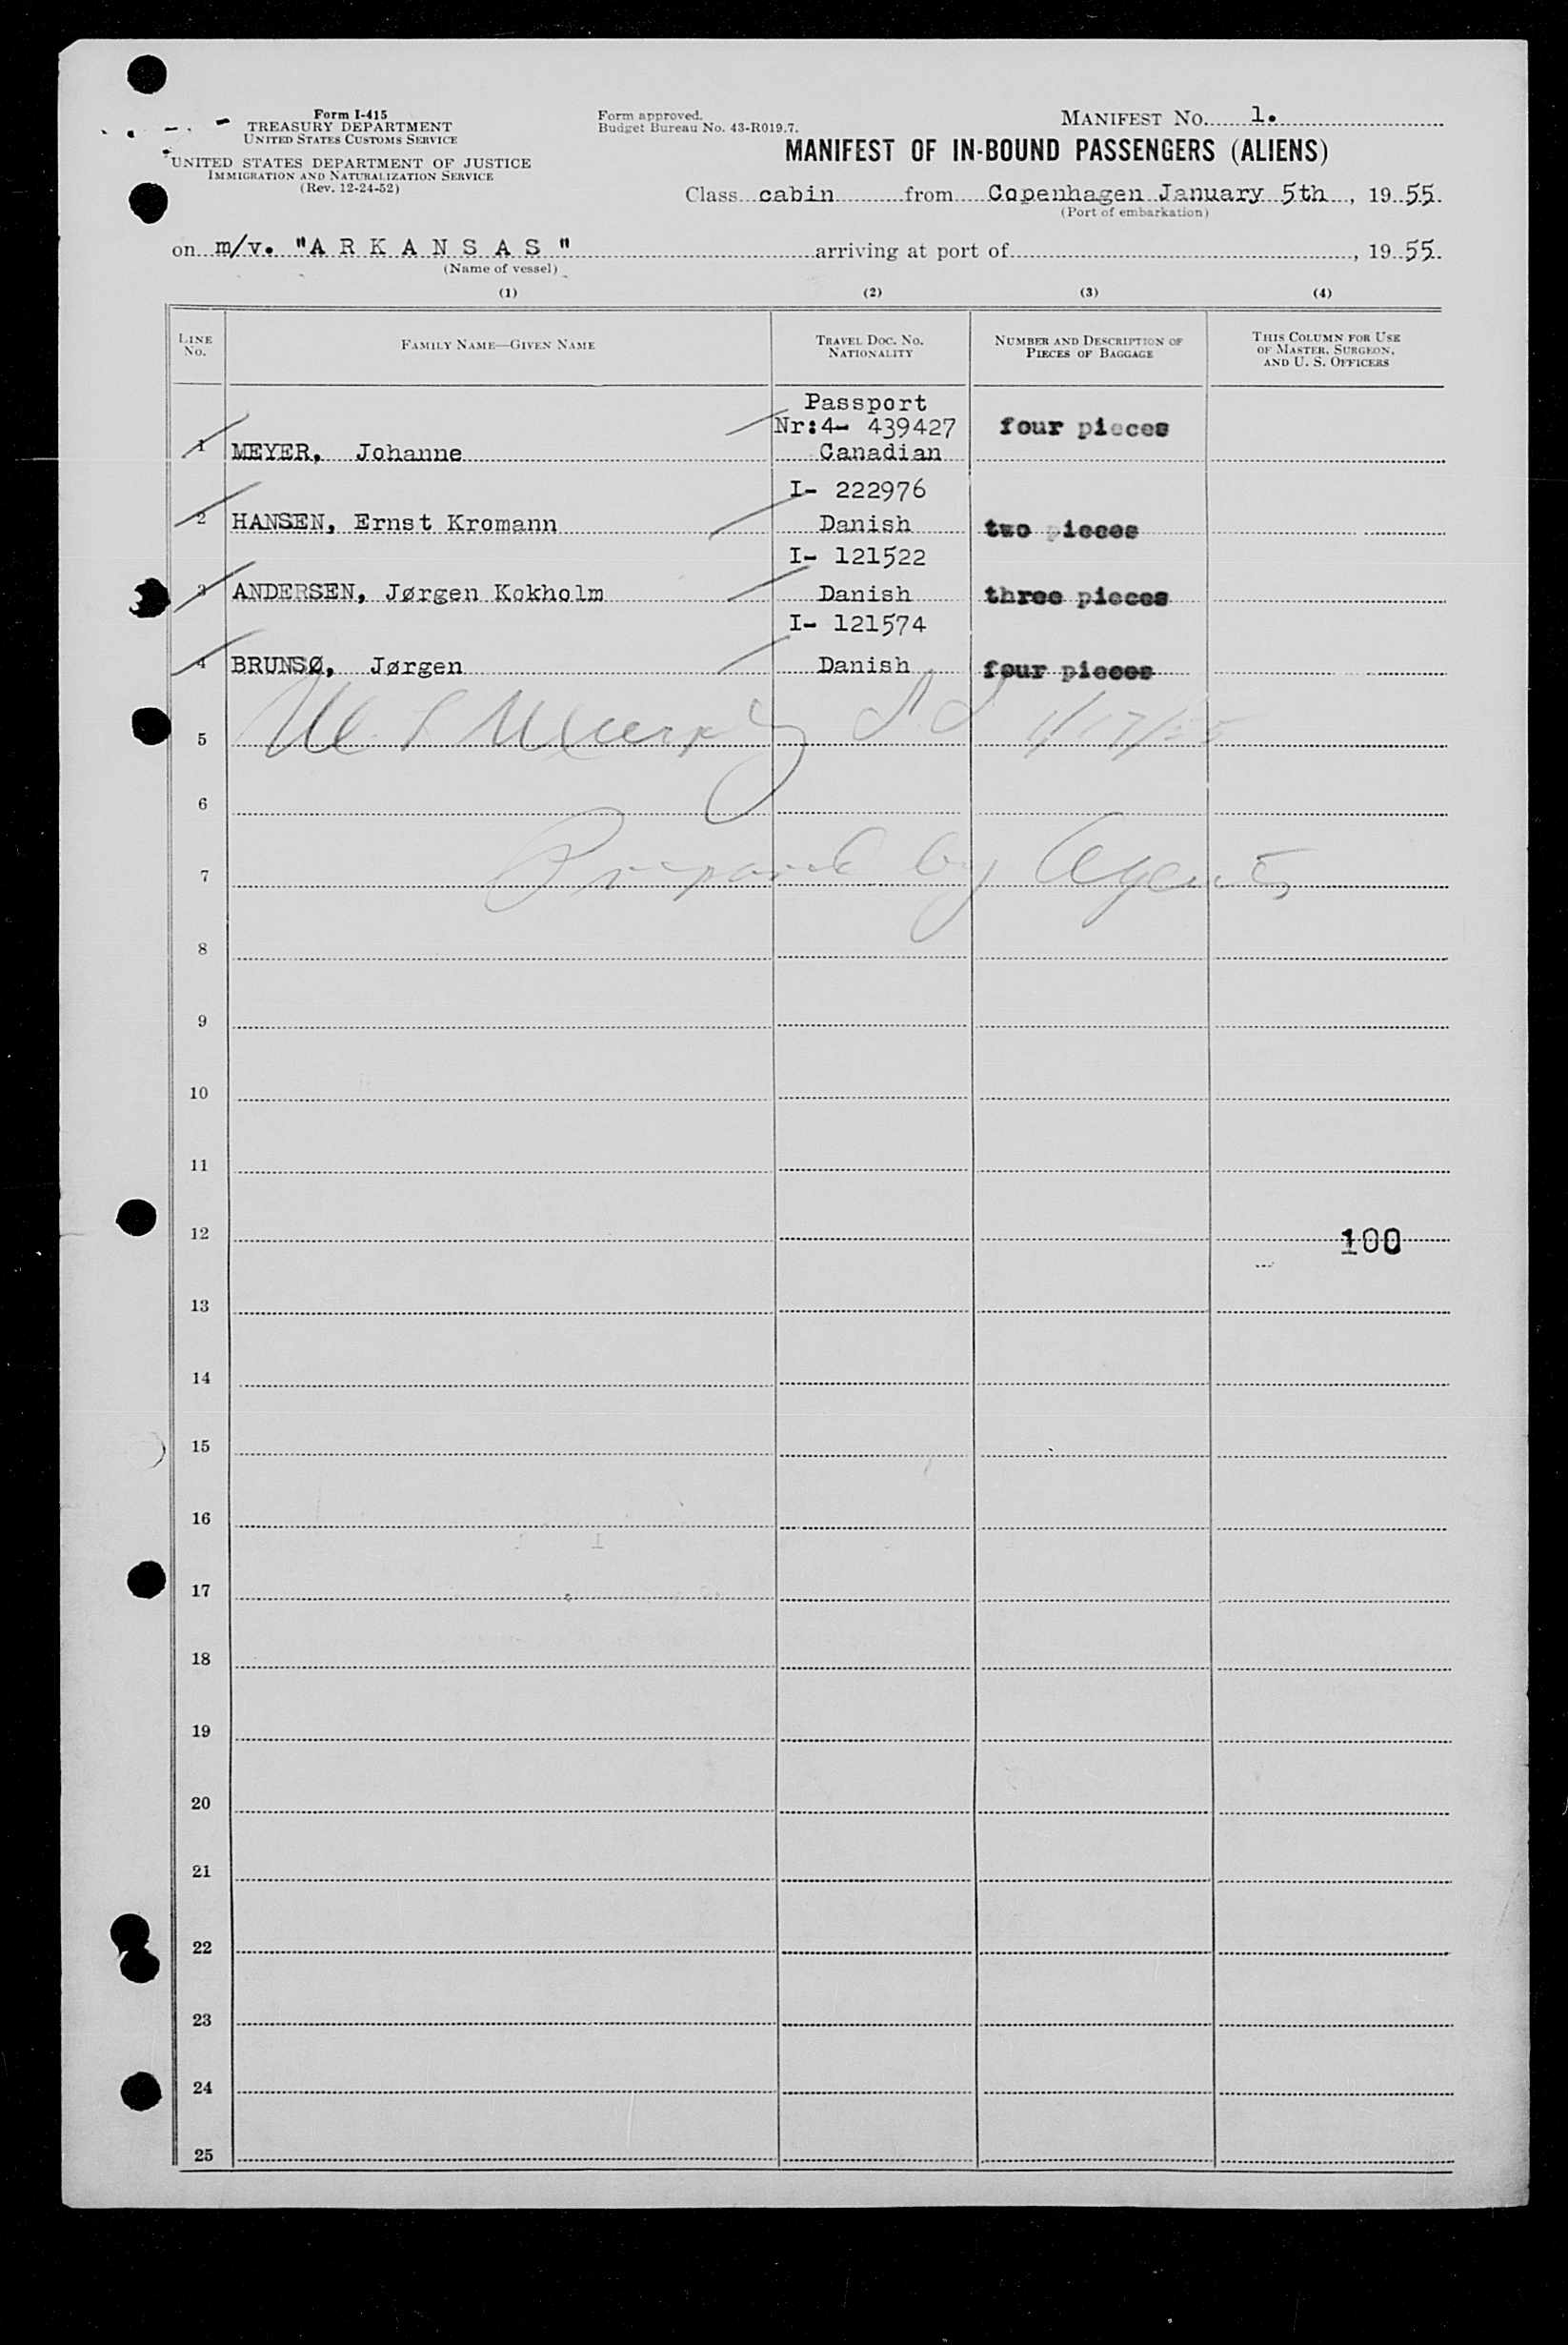 Form I-415
TREASURY DEPARTMENT
UNITED STATES CUSTOMS SERVICE
UNITED STATES DEPARTMENT OF JUSTICE
IMMIGRATION AND NATURALIZATION SERVICE
(Rev. 12-24-52)
Form approved.
Budget Bureau No. 43-R019.7.
MANIFEST No. 1.
MANIFEST OF IN-BOUND PASSENGERS (ALIENS)
Class cabin from Copenhagen January 5th, 19 55.
(Port of embarkation)
on m/v. "A R K A N S A S" arriving at port of , 19 55.
(Name of vessel)
(1) (2) (3) (4)
LINE No. FAMILY NAME—GIVEN NAME TRAVEL DOC. NO. NATIONALITY NUMBER AND DESCRIPTION OF PIECES OF BAGGAGE THIS COLUMN FOR USE OF MASTER, SURGEON, AND U. S. OFFICERS
Passport
Nr:4- 439427 four pieces
1 MEYER, Johanne Canadian
I- 222976
2 HANSEN, Ernst Kromann Danish two pieces
I- 121522
3 ANDERSEN, Jørgen Kokholm Danish three pieces
I- 121574
4 BRUNSØ, Jørgen Danish four pieces
5 Murphy 1/17/55
6
7 Prepared by Agents
8
9
10
11
12 100
13
14
15
16
17
18
19
20
21
22
23
24
25